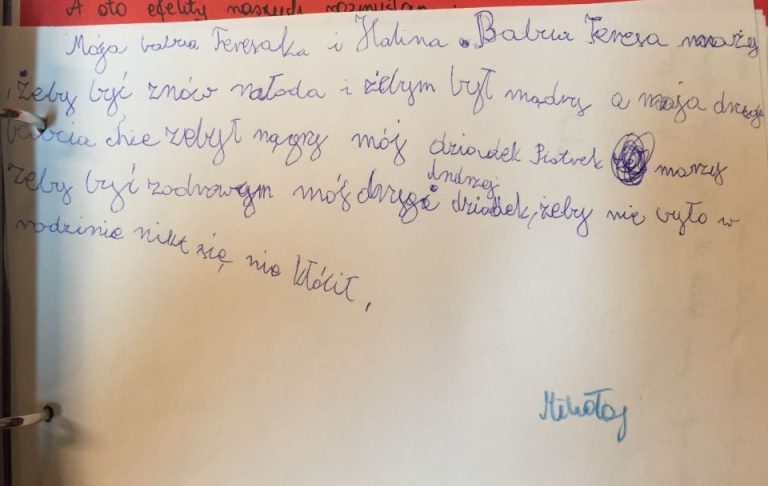 A oto efekty naszych rozmyślań
Moja babcia Teresaka i Halina. Babcia Teresa marzy
, żeby być znów młoda i żebym był mądry a moja druga
babcia chie żebył mądry mój dziadek Piotrek marzy
żeby być zodrowym mój drugi Andrzej dziadek, żeby nie było w
rodzinie nikt się nie kłócił,
Mikołaj